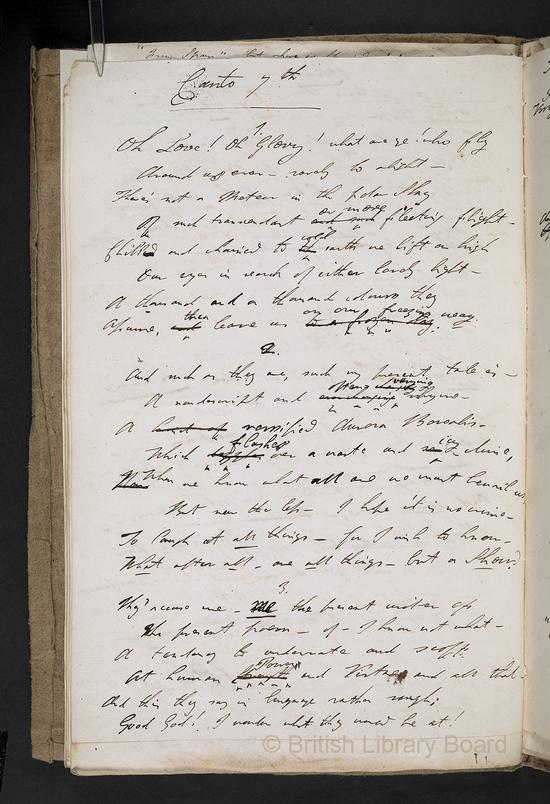 Canto 7th
1.
Oh Love! Oh Glory! what are ye! who fly
Around us ever - rarely to alight -
There's not a Meteor in the polar Sky
Of such transcendant and such or more fleeting flight -
Chilled and chained to cold earth we lift on high
Our eyes in search of either lovely light -
A thousand and a thousand colours they
Assume, then leave us on our freezing way.
2.
And such as they are, such my present tale is -
A nondescript and ever varying rhyme -
A kind of versified Aurora Borealis -
Which flashes over a waste and icy clime,
When we know what all are we must bewail us,
But ne'er the less - I hope it is no crime -
To laugh at all things - for I wish to know -
What after all, are all things - but a Show?
3.
They accuse me - me the present writer of
The present poem - of - I know not what -
A tendency to underrate and scoff
At human Power and Virtue and all that -
And this they say in language rather rough;
Good God! I wonder what they would be at!
© British Library Board